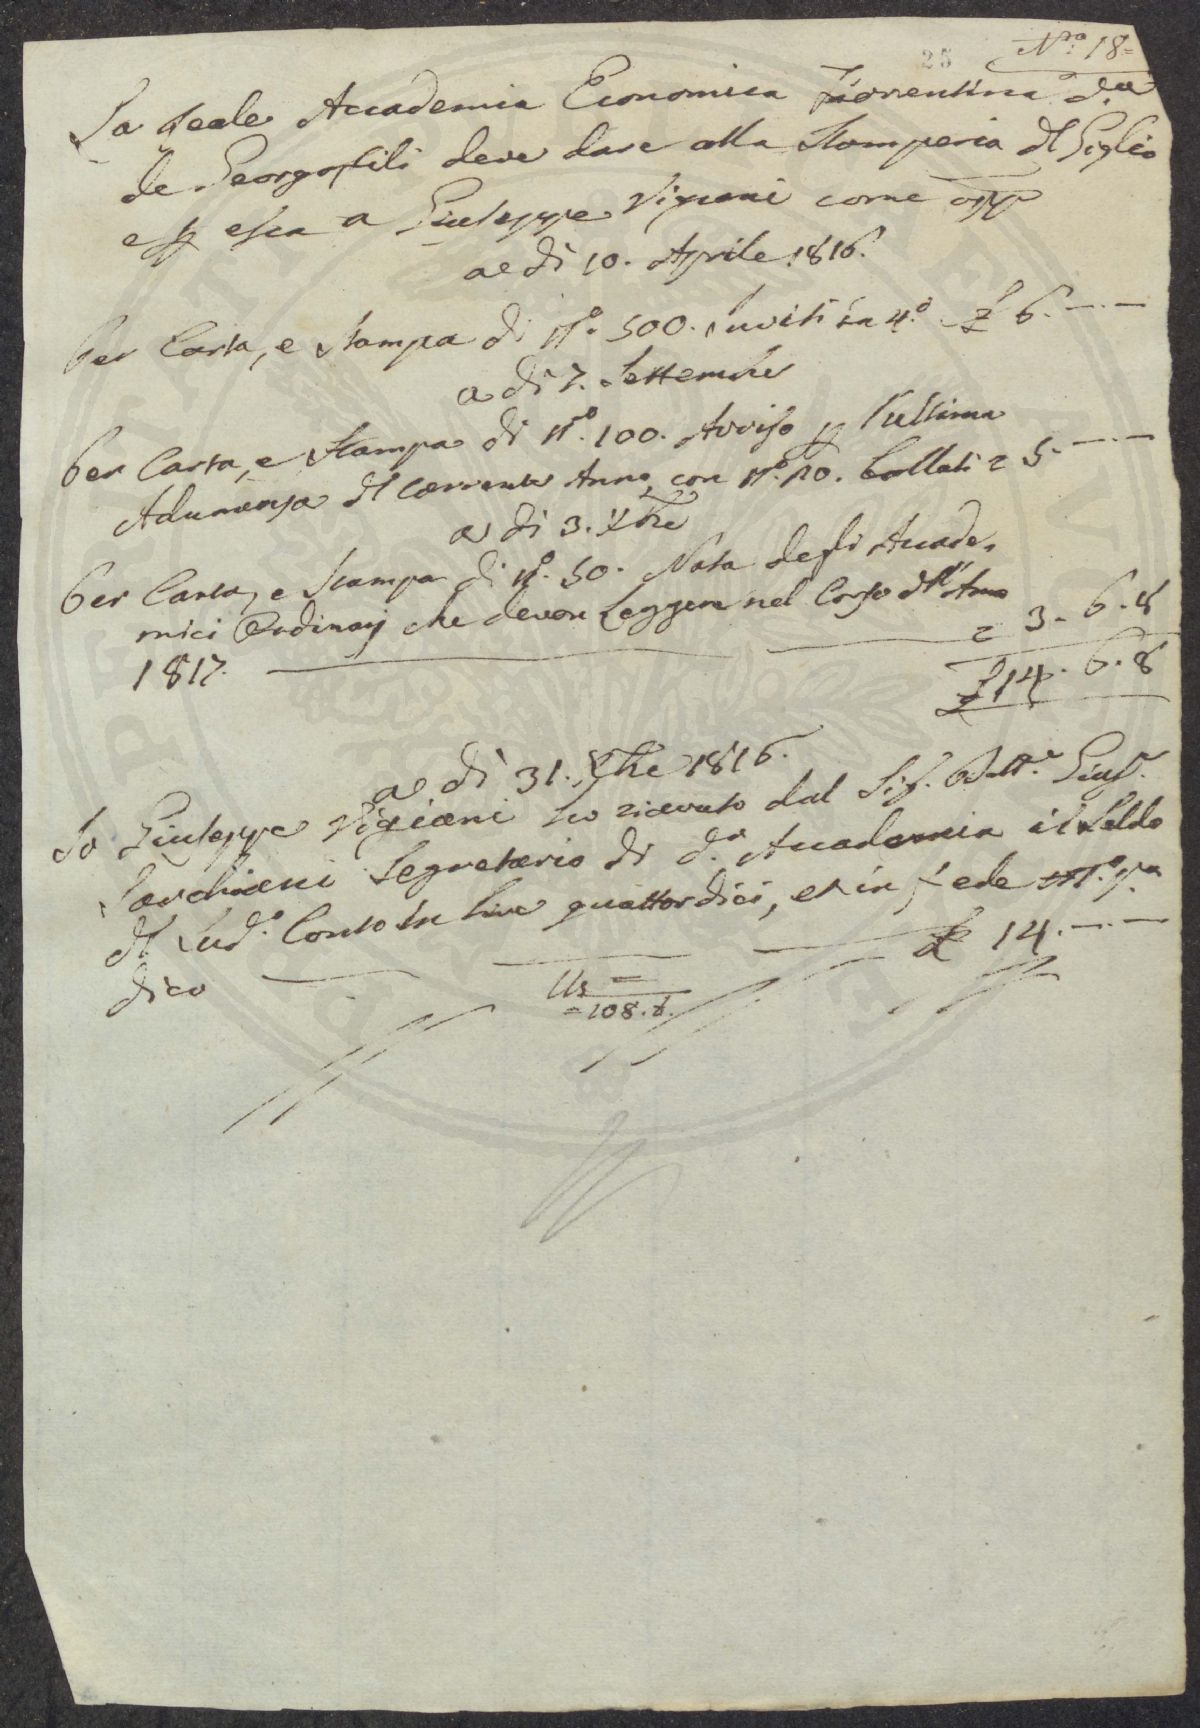 25
N.ro 18=
La Reale Accademia Economica Fiorentina d.a
de Georgofili deve dare alla Stamperia del Giglio
e p essa a Giuseppe Vigiani come app
a dì 10. Aprile 1816.
Per Carta, e Stampa di N.o 500. Inviti in 4.o £ 6.—.—
a dì 7. Settembre
Per Carta, e Stampa di N.o 100. Avviso p l'ultima
Adunanza del corrente Anno, con N.o 20. bollati = 5.—.—
a di 3. Xbre
Per Carta, e Stampa di N.o 50. Nota degli Accade=
mici Ordinarj che devon Leggere nel Corso dell'Anno
1817. = 3. 6. 8
£ 14. 6. 8
a dì 31. Xbre 1816.
Io Giuseppe Vigiani ho ricevuto dal Sig. Dott.e Gius.e
Sarchiani Segretario di d.a Accademia il Saldo
del Sud.o Conto in Lire quattordici, et in fede M.o p.a
dico £ 14.—.—
108.